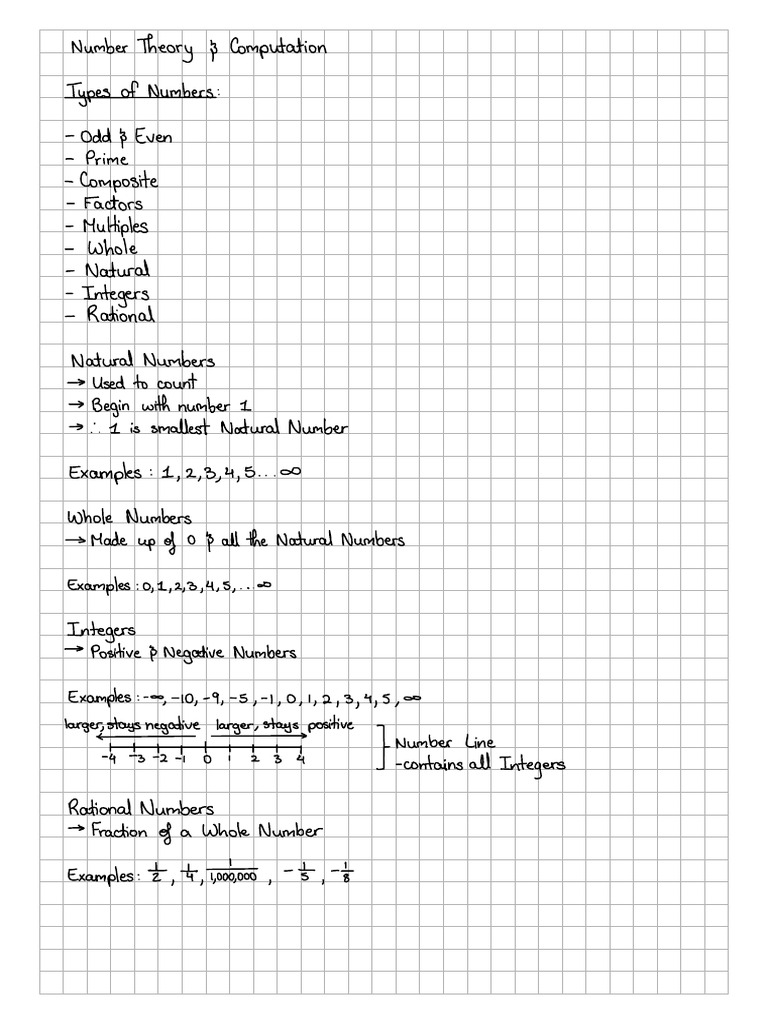 Number Theory & Computation
Types of Numbers:
- Odd & Even
- Prime
- Composite
- Factors
- Multiples
- Whole
- Natural
- Integers
- Rational
Natural Numbers
→ Used to count
→ Begin with number 1
→ ∴ 1 is smallest Natural Number
Examples : 1, 2, 3, 4, 5... ∞
Whole Numbers
→ Made up of 0 & all the Natural Numbers
Examples : 0, 1, 2, 3, 4, 5, ... ∞
Integers
→ Positive & Negative Numbers
Examples : -∞, -10, -9, -5, -1, 0, 1, 2, 3, 4, 5, ∞
larger, stays negative larger, stays positive
Number Line
-4 -3 -2 -1 0 1 2 3 4
-contains all Integers
Rational Numbers
→ Fraction of a Whole Number
Examples: 1/2, 1/4, 1/1,000,000, -1/5, -1/8